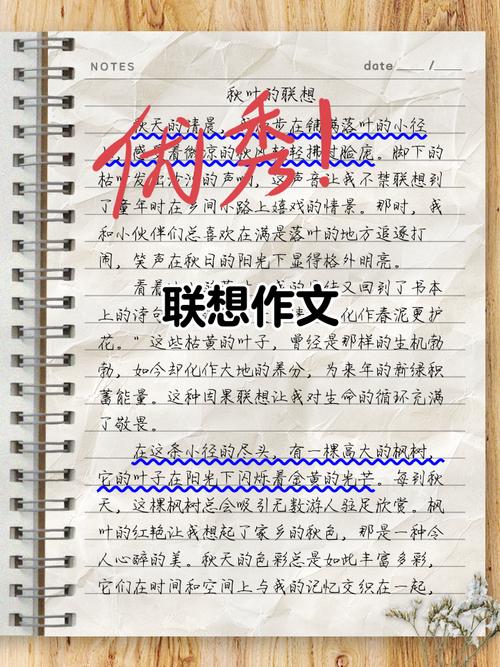 NOTES
date /
秋叶的联想
秋天的清晨,步在铺满落叶的小径
感受着微凉的秋风轻轻拂过脸庞。脚下的
枯叶发出沙沙的声响,这声音让我不禁联想到
了童年时在乡间小路上嬉戏的情景。那时,我
和小伙伴们总喜欢在满是落叶的地方追逐打
闹,笑声在秋日的阳光下显得格外明亮。
看着
又回到了书本
上的诗
化作春泥更护
花。"这些枯黄的叶子,曾经是那样的生机勃
勃,如今却化作大地的养分,为来年的新绿积
蓄能量。这种因果联想让我对生命的循环充满
了敬畏。
在这条小径的尽头,有一棵高大的枫树,
它的叶子在阳光下闪烁着金黄的光芒。每到秋
天,这棵枫树总会吸引无数游人驻足欣赏。枫
叶的红艳让我想起了家乡的秋色,那是一种令
人心醉的美。秋天的色彩总是如此丰富多彩,
它们在时间和空间上与我的记忆交织在一起,
优秀!
联想作文